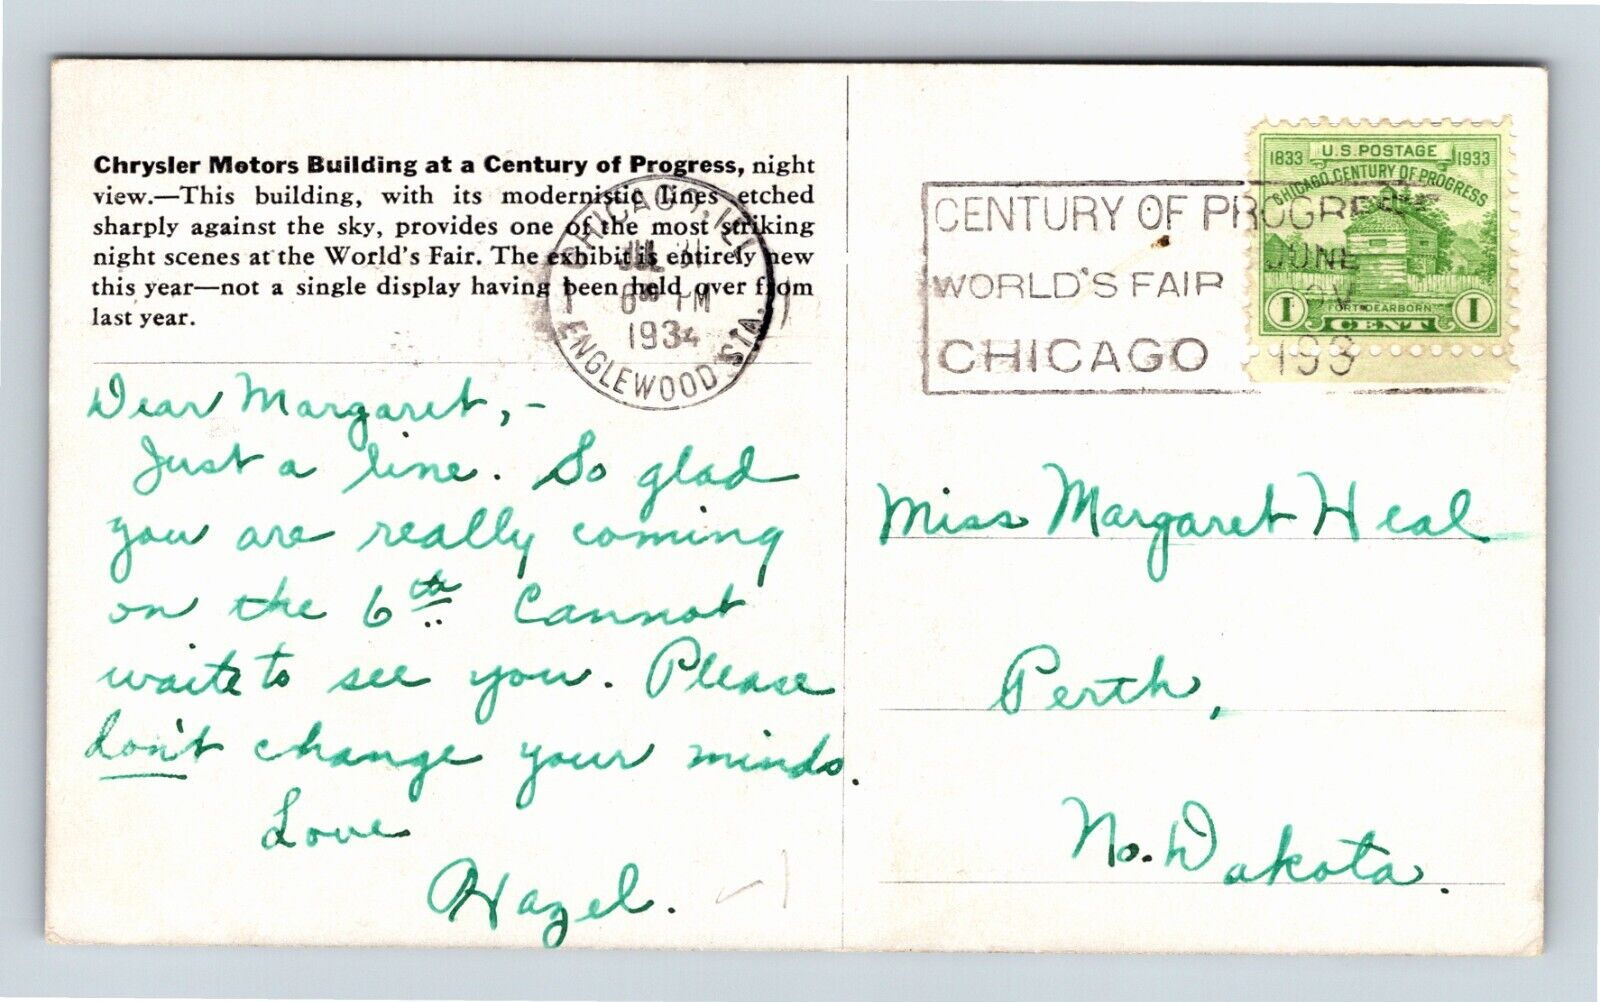 Chrysler Motors Building at a Century of Progress, night
view.—This building, with its modernistic lines etched
sharply against the sky, provides one of the most striking
night scenes at the World's Fair. The exhibit is entirely new
this year—not a single display having been held over from
last year.
CHICAGO, ILL.
JUL 31
6 PM
1934
ENGLEWOOD STA.
CENTURY OF PROGRESS
WORLD'S FAIR
JUNE
NOV.
CHICAGO
193
1833 U.S. POSTAGE 1933
CHICAGO, CENTURY OF PROGRESS
FORT DEARBORN
1 CENT 1
Dear Margaret,-
Just a line. So glad
you are really coming
on the 6th. Cannot
waite to see you. Please
don't change your minds.
Love
Hazel.
Miss Margaret Heal
Perth,
No. Dakota.